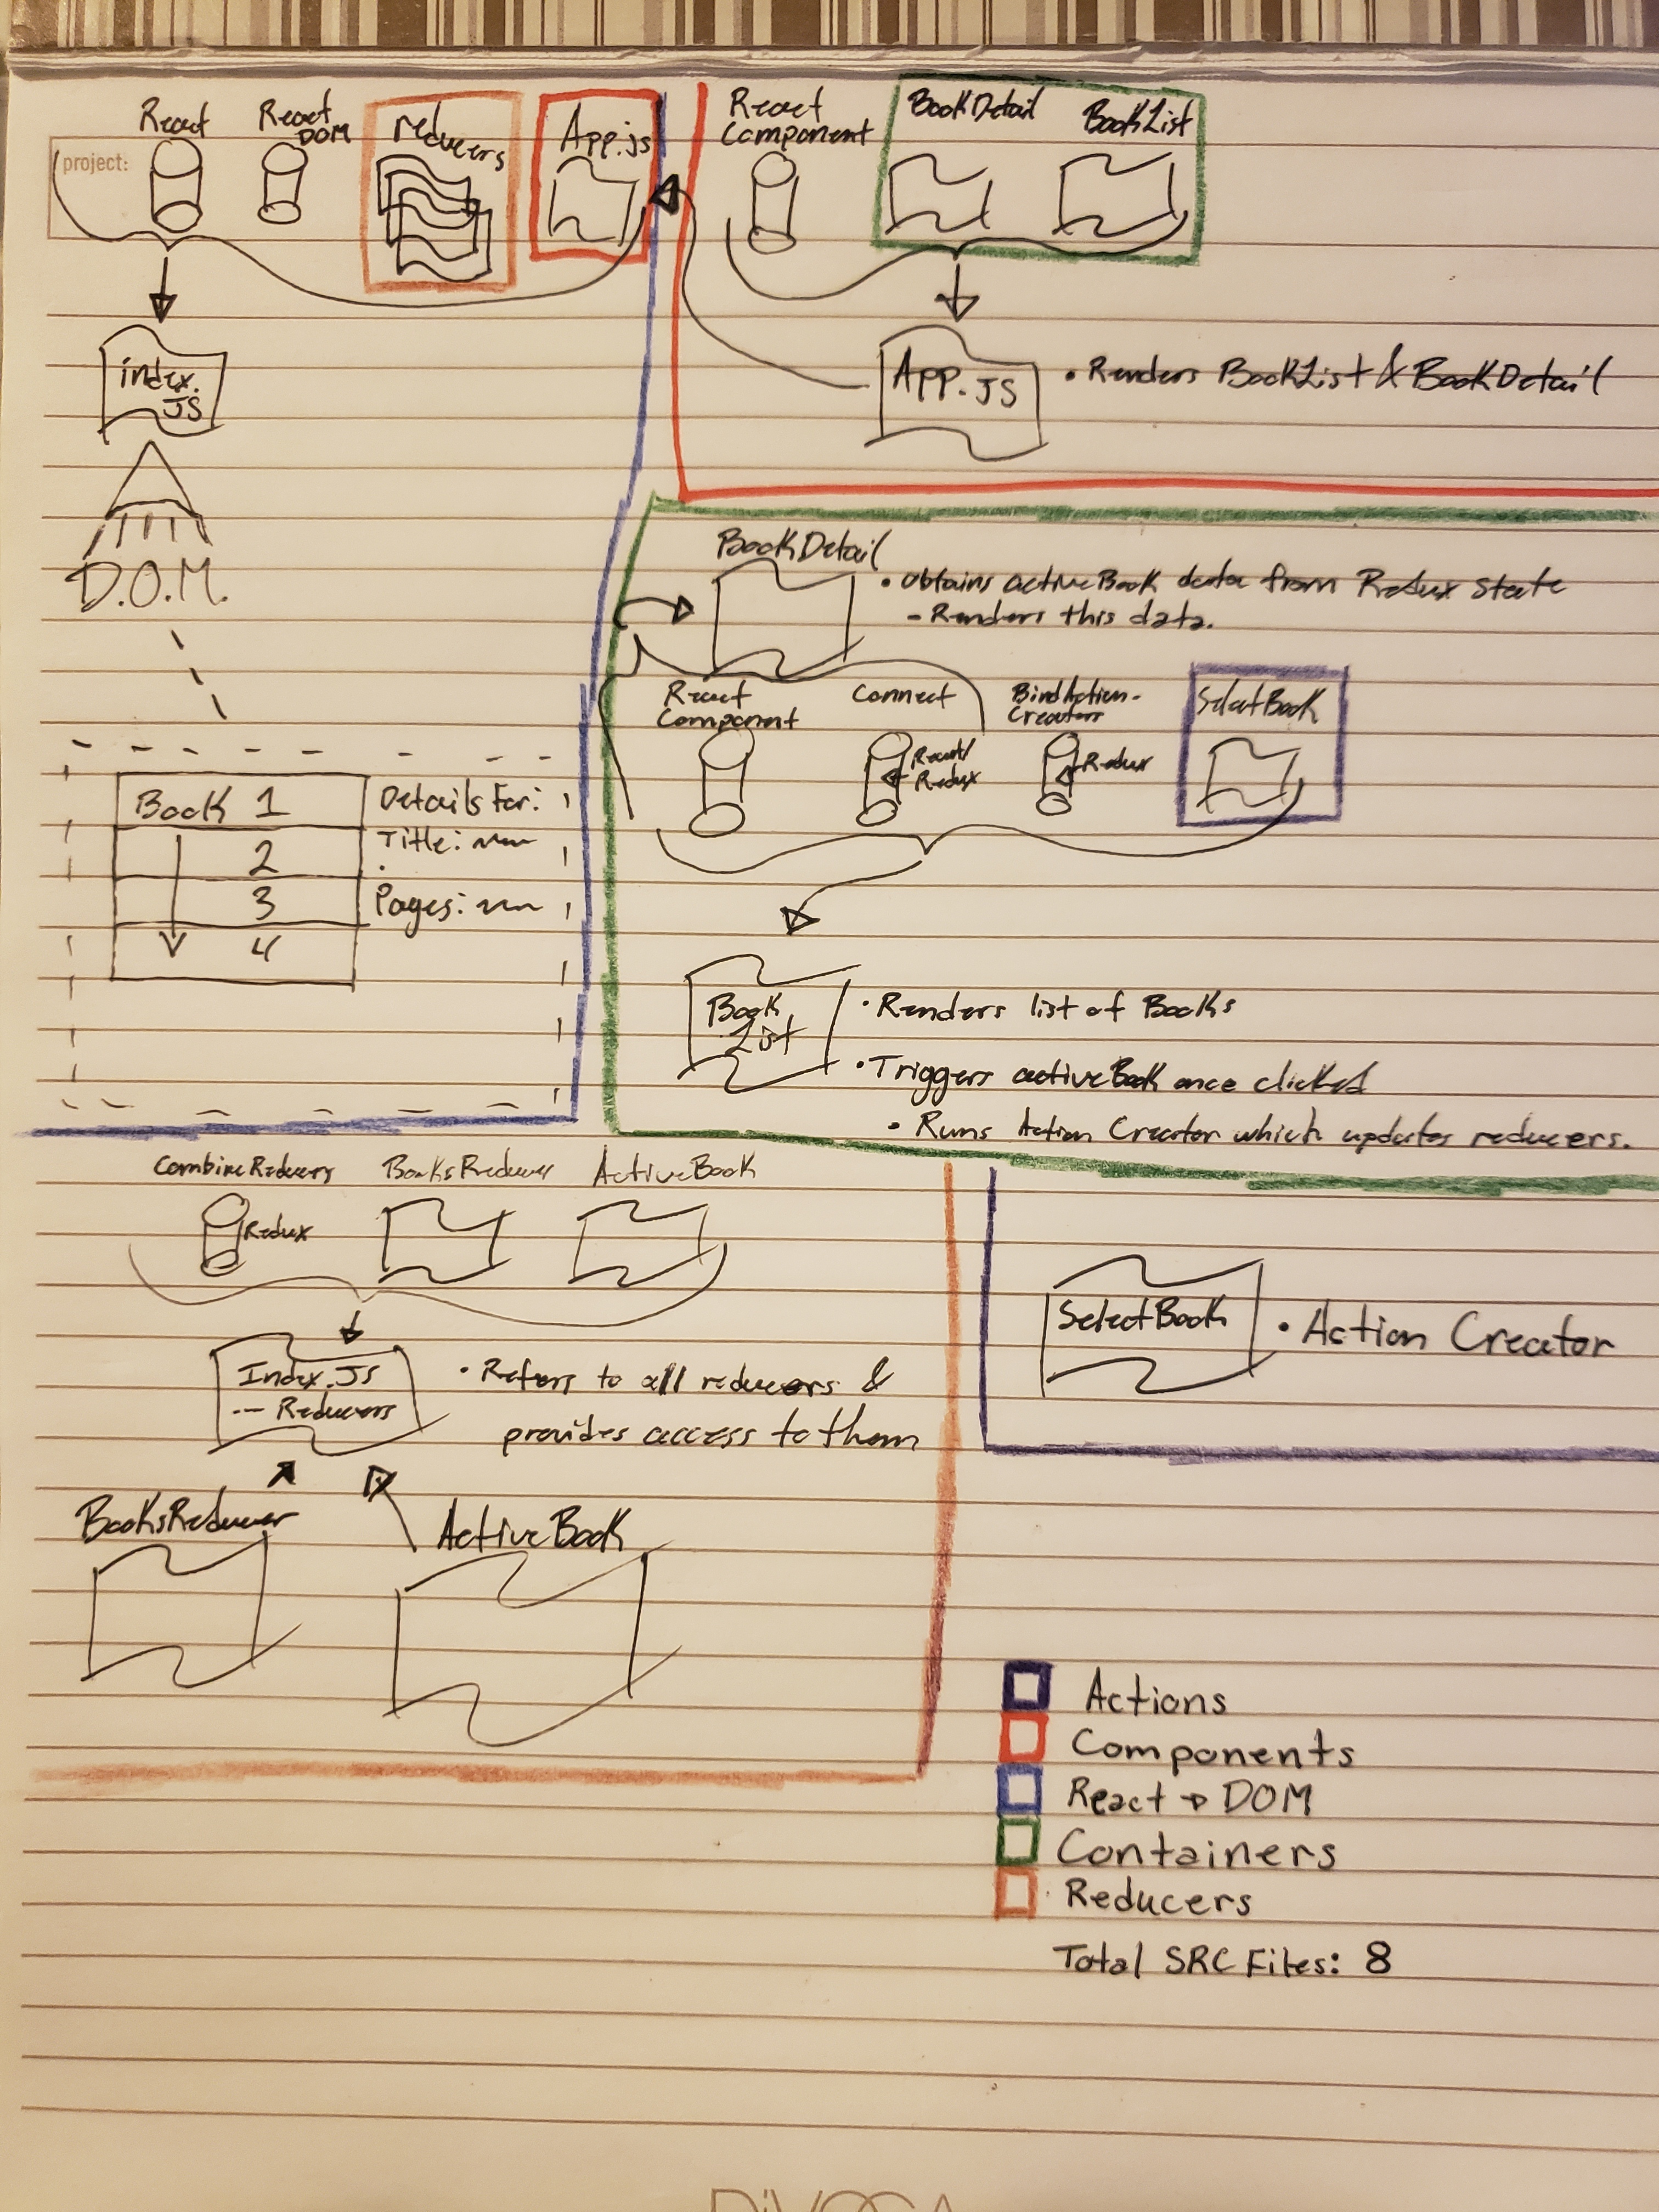 project:
React
React DOM
reducers
App.js
index.
JS
D.O.M.
Book 1
2
3
4
Details For:
Title:
Pages:
React
Component
BookDetail
BookList
App.JS
• Renders BookList & BookDetail
BookDetail
• Obtains activeBook data from Redux state
- Renders this data.
React
Component
Connect
React/
Redux
BindAction-
Creators
Redux
SelectBook
Book
List
• Renders list of Books
• Triggers activeBook once clicked
• Runs Action Creator which updates reducers.
CombineReducers
Redux
BooksReducer
ActiveBook
Index.JS
-- Reducers
• Refers to all reducers &
provides access to them
BooksReducer
ActiveBook
SelectBook
• Action Creator
Actions
Components
React → DOM
Containers
Reducers
Total SRC Files: 8
DiVOGA